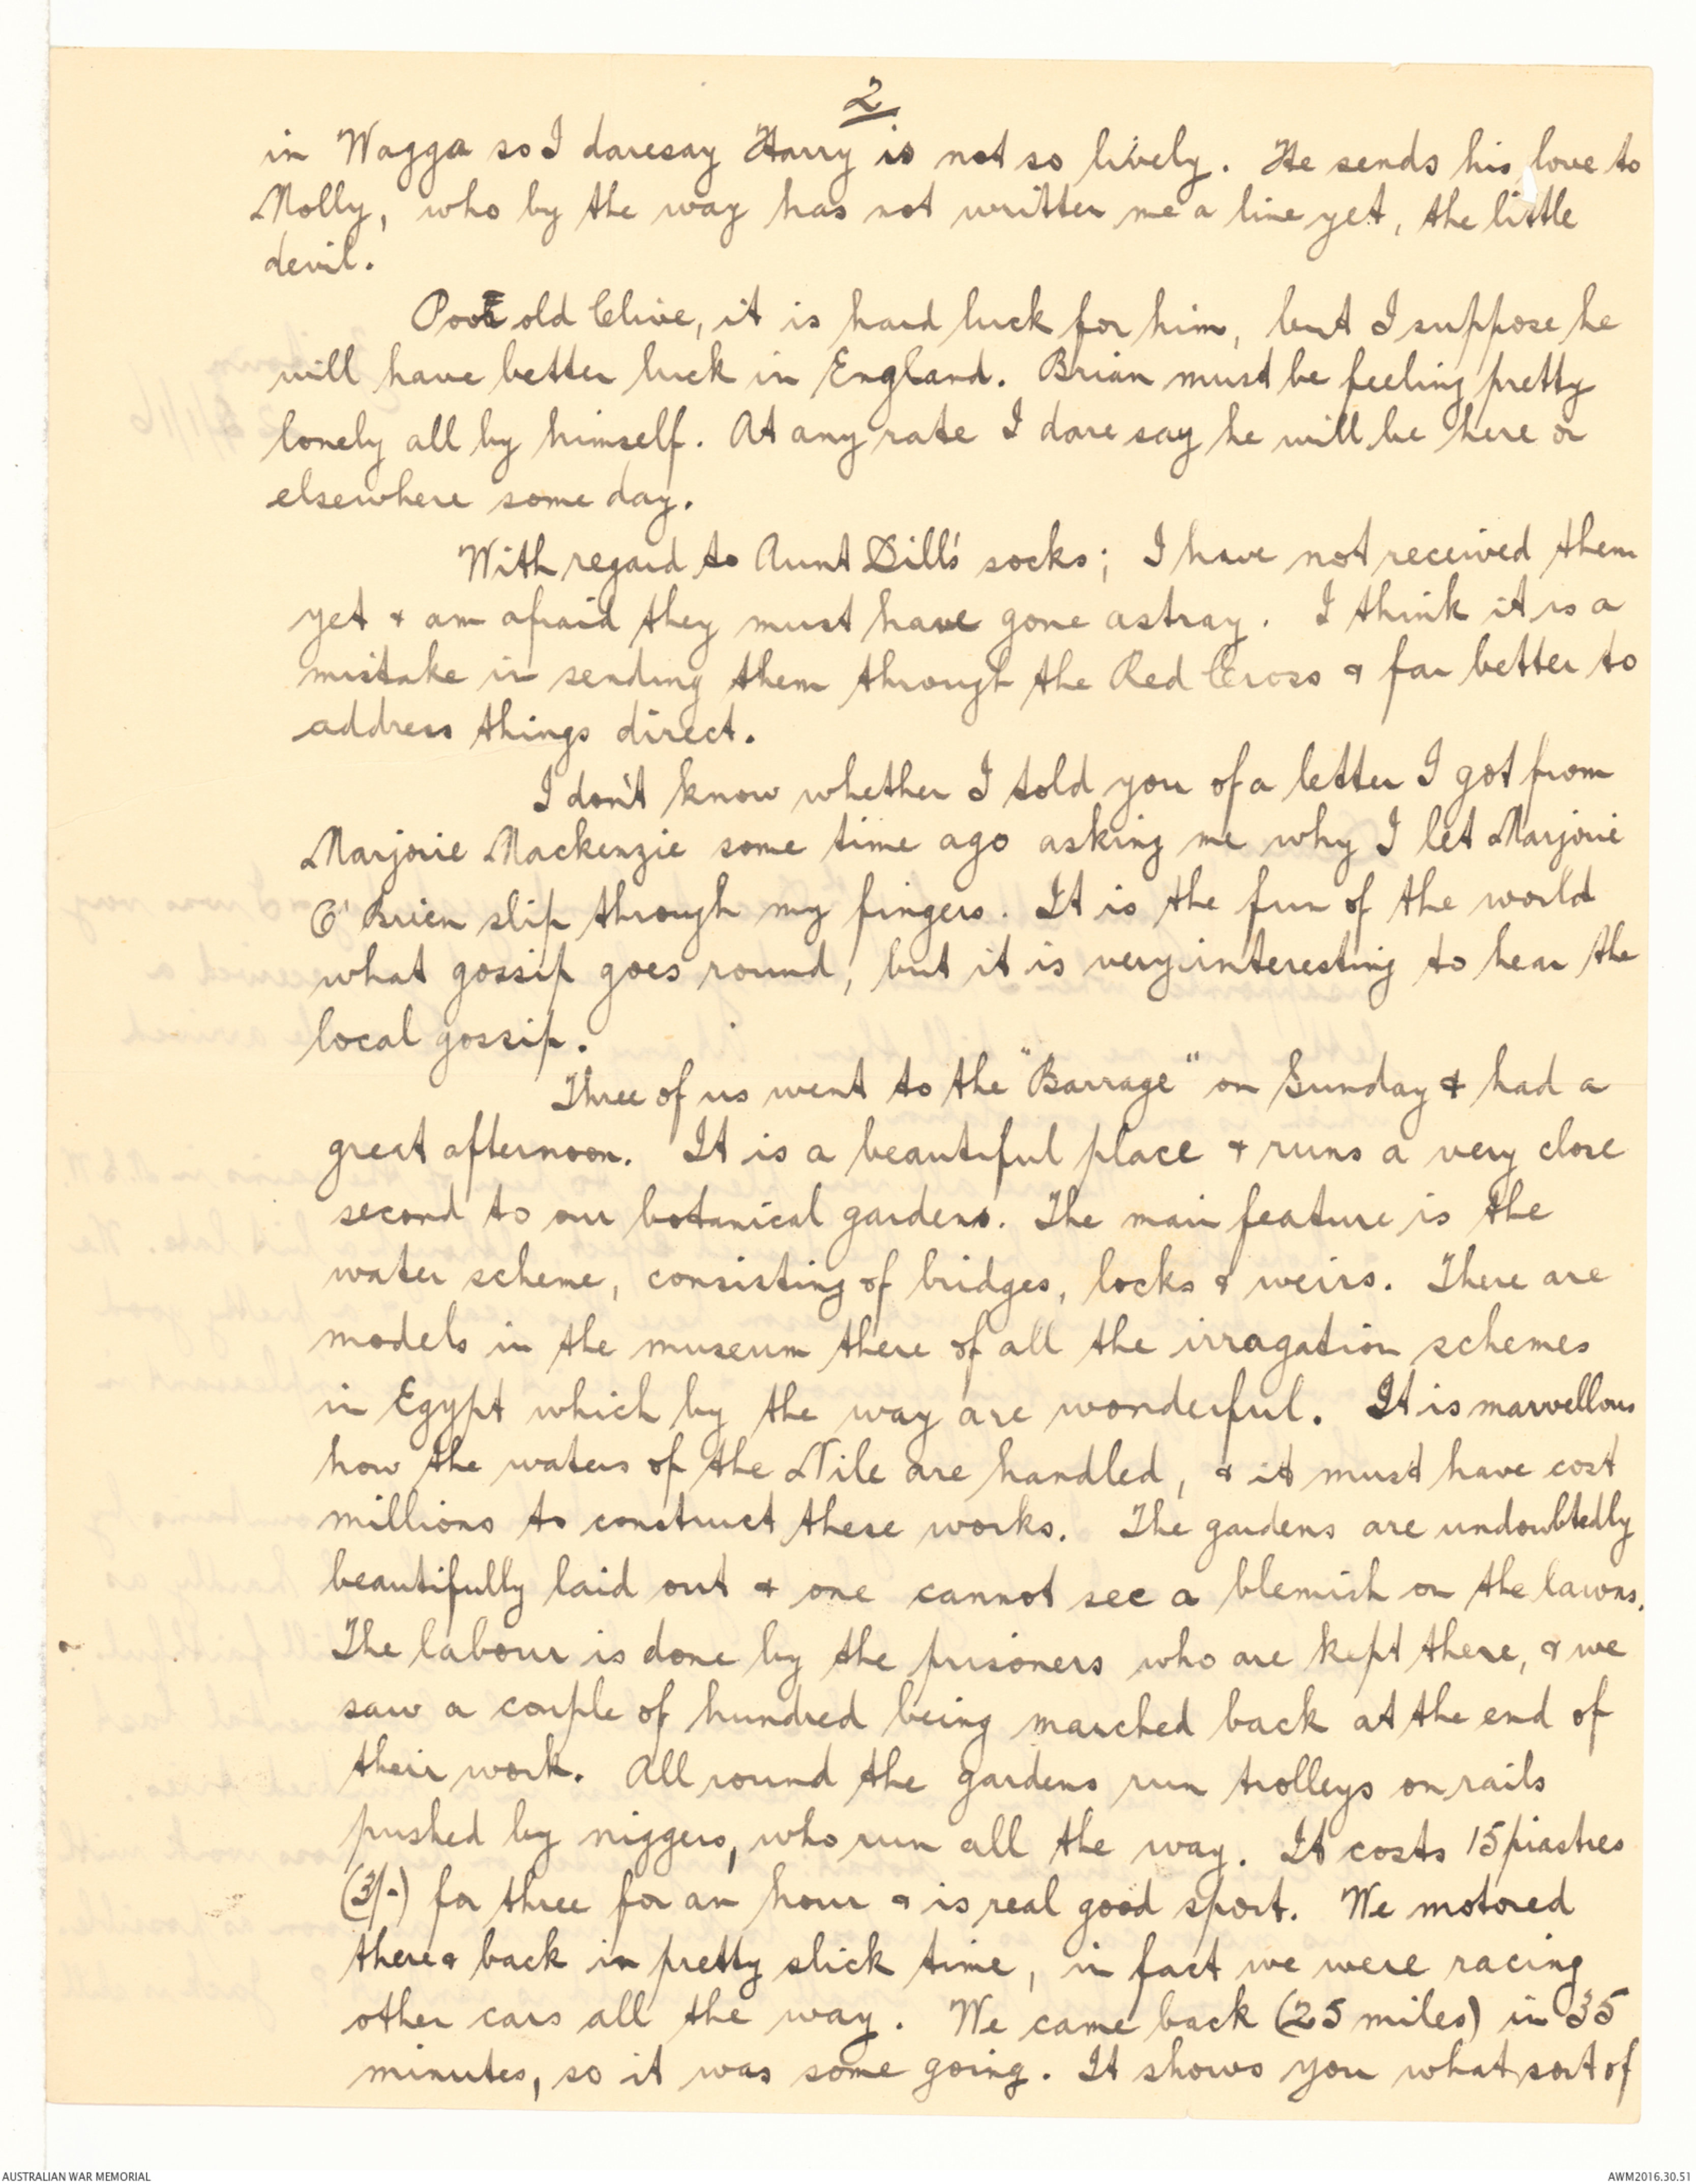 2
in Wagga so I daresay Harry is not so lively. He sends his love to
Molly, who by the way has not written me a line yet, the little
devil.
Poor old Clive, it is hard luck for him, but I suppose he
will have better luck in England. Brian must be feeling pretty
lonely all by himself. At any rate I dare say he will be here or
elsewhere some day.
With regard to Aunt Dill's socks; I have not received them
yet & am afraid they must have gone astray. I think it is a
mistake in sending them through the Red Cross & far better to
address things direct.
I don't know whether I told you of a letter I got from
Marjorie Mackenzie some time ago asking me why I let Marjorie
O'Brien slip through my fingers. It is the fun of the world
what gossip goes round, but it is very interesting to hear the
local gossip.
Three of us went to the "Barrage" on Sunday & had a
great afternoon. It is a beautiful place & runs a very close
second to our botanical gardens. The main feature is the
water scheme, consisting of bridges, locks & weirs. There are
models in the museum there of all the irragation schemes
in Egypt which by the way are wonderful. It is marvellous
how the waters of the Nile are handled, & it must have cost
millions to construct these works. The gardens are undoubtedly
beautifully laid out & one cannot see a blemish on the lawns.
The labour is done by the prisoners who are kept there, & we
saw a couple of hundred being marched back at the end of
their work. All round the gardens run trolleys on rails
pushed by niggers, who run all the way. It costs 15 piastres
(3/-) for three for an hour & is real good sport. We motored
there & back in pretty slick time, in fact we were racing
other cars all the way. We came back (25 miles) in 35
minutes, so it was some going. It shows you what sort of
AUSTRALIAN WAR MEMORIAL
AWM2016.30.51